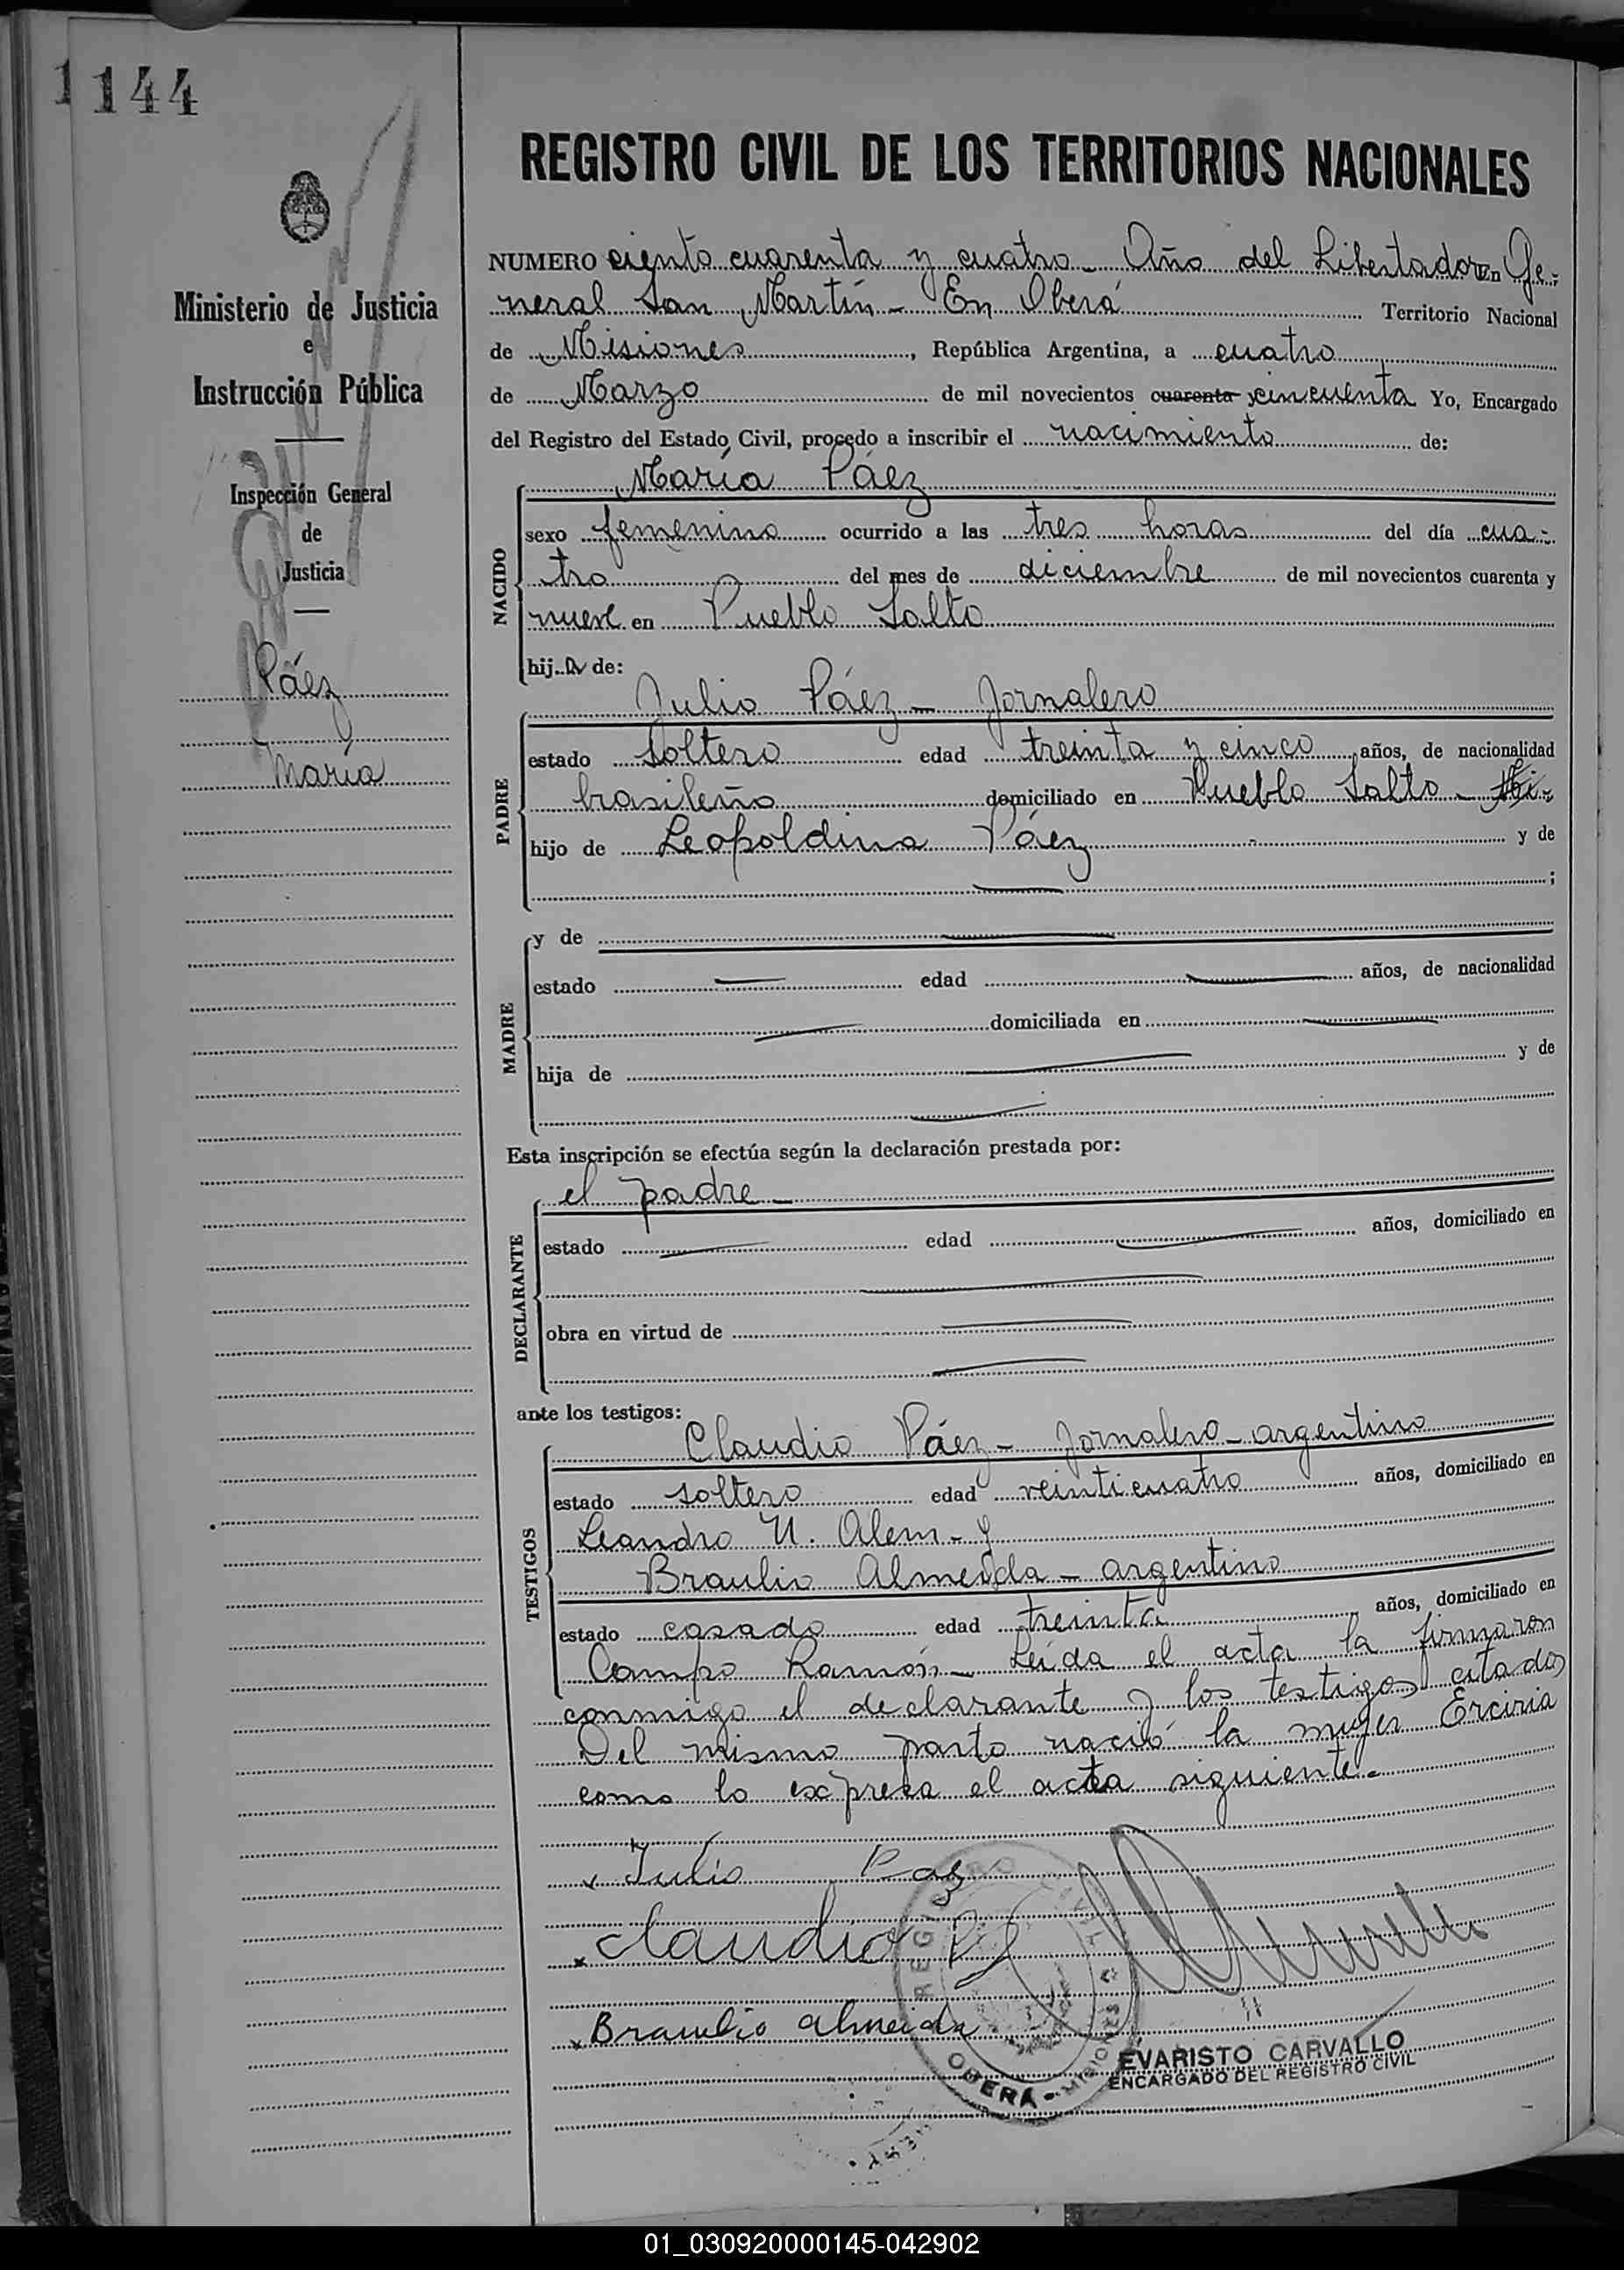 1144
REGISTRO CIVIL DE LOS TERRITORIOS NACIONALES
NUMERO ciento cuarenta y cuatro - Año del Libertador En Ge-
neral San Martín - En Oberá Territorio Nacional
de Misiones, República Argentina, a cuatro
de Marzo de mil novecientos cuarenta y cincuenta Yo, Encargado
del Registro del Estado Civil, procedo a inscribir el nacimiento de:
Ministerio de Justicia
e
Instrucción Pública
Inspección General
de
Justicia
Páez
María
NACIDO
María Páez
sexo femenino ocurrido a las tres horas del día cua-
tro del mes de diciembre de mil novecientos cuarenta y
nueve en Pueblo Salto
hija de:
PADRE
Julio Páez - Jornalero
estado soltero edad treinta y cinco años, de nacionalidad
brasileño domiciliado en Pueblo Salto -
hijo de Leopoldina Páez y de
;
MADRE
y de
estado edad años, de nacionalidad
domiciliada en
hija de y de
Esta inscripción se efectúa según la declaración prestada por:
DECLARANTE
el padre -
estado edad años, domiciliado en
obra en virtud de
ante los testigos:
TESTIGOS
Claudio Páez - Jornalero - argentino
estado soltero edad veinticuatro años, domiciliado en
Leandro N. Alem - y
Braulio Almeida - argentino
estado casado edad treinta años, domiciliado en
Campo Ramón - Leída el acta la firmaron
conmigo el declarante y los testigos citados
Del mismo parto nació la mujer Erciria
como lo expresa el acta siguiente.-
x Julio Paez
x Claudio P
x Braulio Almeida
REGISTRO CIVIL
OBERÁ - MISIONES
EVARISTO CARVALLO
ENCARGADO DEL REGISTRO CIVIL
01_030920000145-042902